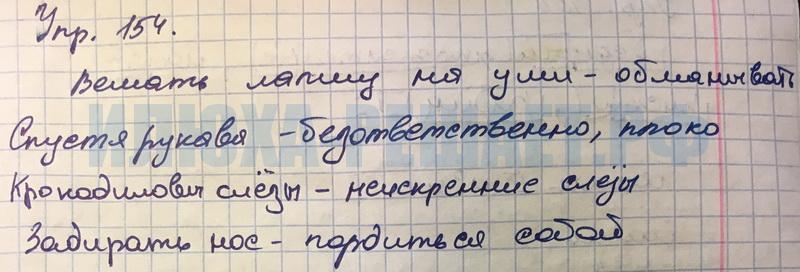 Упр. 154.
Вешать лапшу на уши - обманывать
Спустя рукава - безответственно, плохо
Крокодиловы слёзы - неискренние слёзы
Задирать нос - гордиться собой
ИЛЮХА-РЕШАЕТ.РФ